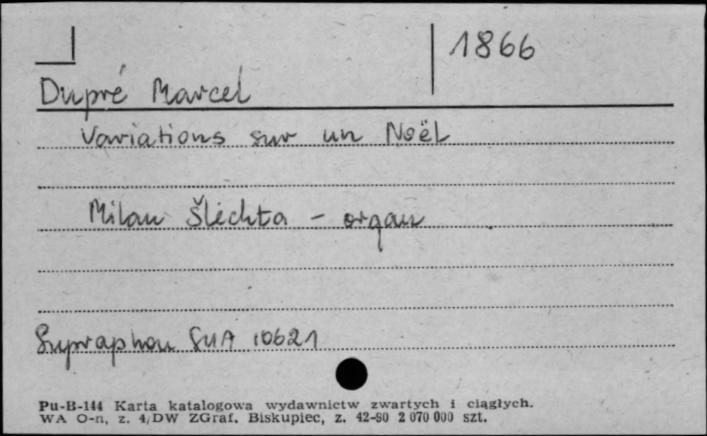 1866
Dupré Marcel
Variations sur un Noël
Milan Šlechta - organ
Supraphon SUA 10621
Pu-B-144 Karta katalogowa wydawnictw zwartych i ciągłych.
WA O-n, z. 4/DW ZGraf. Biskupiec, z. 42-80 2 070 000 szt.